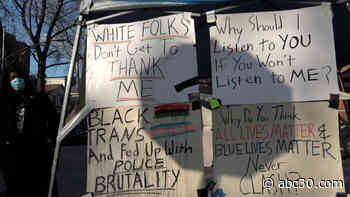 WHITE FOLKS
Don't Get To
THANK
ME
Why Should I
Listen to YOU
If You Won't
Listen to ME?
BLACK
TRANS
And Fed Up With
POLICE
BRUTALITY
Why Do You Think
ALL LIVES MATTER &
BLUE LIVES MATTER
Never
CLASH?
@ abc30.com